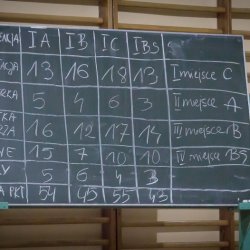 IA IB IC IBS
13 16 18 13 I miejsce C
5 4 6 3 II miejsce A
16 12 17 14 III miejsce B
15 7 10 10 IV miejsce BS
5 6 4 3
PKT 54 45 55 43